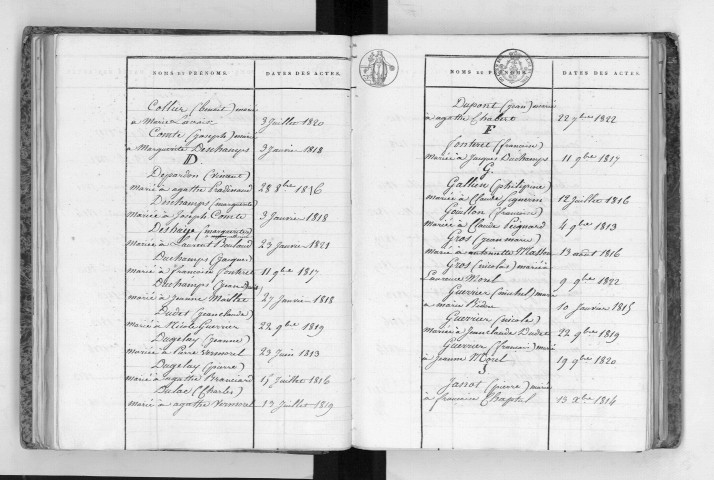 NOMS ET PRÉNOMS. DATES DES ACTES.
Collier (benoit) marié
à Marie 3 Juillet 1820
Comte (joseph) marié
à Marguerite Deschamps 3 Janvier 1818
D
Depardon (vincent)
marié à agathe 28 8bre 1816
Deschamps (marguerite)
mariée à Joseph Comte 3 Janvier 1818
Deshaye (marguerite)
mariée à Laurent 23 Janvier 1821
Duchamps (jacques)
marié à françoise Fontret 11 9bre 1817
Duchamps (jean)
marié à Jeanne Mallet 27 Janvier 1818
Dudet (jeanclaude)
marié à Nicole Guerrier 22 9bre 1819
Dugelay (jeanne)
mariée à Pierre Vermorel 23 Juin 1813
Dugelay (pierre)
marié à agathe 15 Juillet 1816
Dulac (Charles)
marié à agathe Vermorel 13 Juillet 1819
NOMS ET PRÉNOMS. DATES DES ACTES.
Dupont (jean) marié
à agathe Chabert 22 7bre 1822
F
Fontret (françoise)
mariée à Jacques Duchamps 11 9bre 1817
G.
Gallien (philipine)
mariée à Claude 12 Juillet 1816
Goullon (françoise)
mariée à Claude 4 9bre 1813
Gros (jean marie)
marié à antoinette Mathon 13 aout 1816
Gros (nicolas) marié à
Laurence Morel 9 9bre 1822
Guerrier (michel) marié
à marie 10 Janvier 1815
Guerrier (nicole)
mariée à Jeanclaude Dudet 22 9bre 1819
Guerrier (françois) marié
à Jeanne Morel 19 9bre 1820
J
Janot (pierre) marié
à francoise Chaptal 13 Xbre 1814